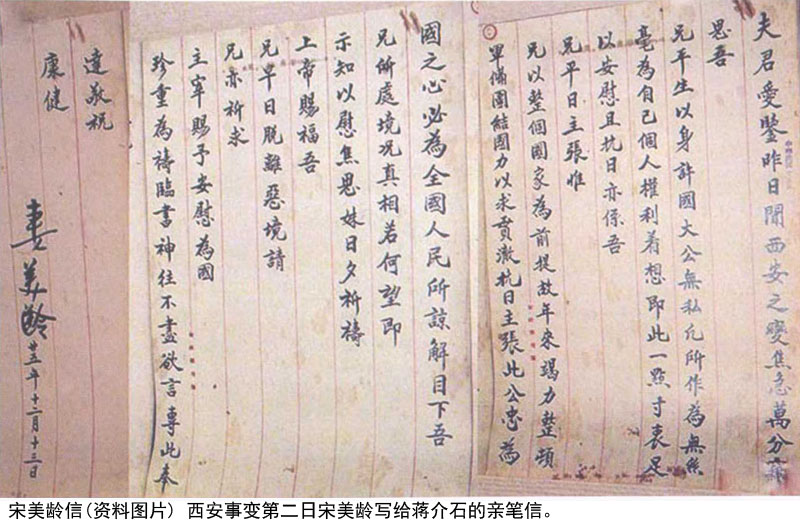 夫君愛鑒昨日聞西安之變焦急萬分竊
思吾
兄平生以身許國大公無私凡所作為無絲
毫為自己個人權利着想即此一點寸衷足
以安慰且抗日亦係吾
兄平日主張惟
兄以整個國家為前提故年來竭力整頓
軍備團結國力以求貫澈抗日主張此公忠為
國之心必為全國人民所諒解目下吾
兄所處境况真相若何望即
示知以慰焦思妹日夕祈禱
上帝賜福吾
兄早日脫離惡境請
兄亦祈求
主宰賜予安慰為國
珍重為禱臨書神往不盡欲言專此奉
達敬祝
康健
妻美齡 廿五年十二月十三日
宋美龄信(资料图片) 西安事变第二日宋美龄写给蒋介石的亲笔信。